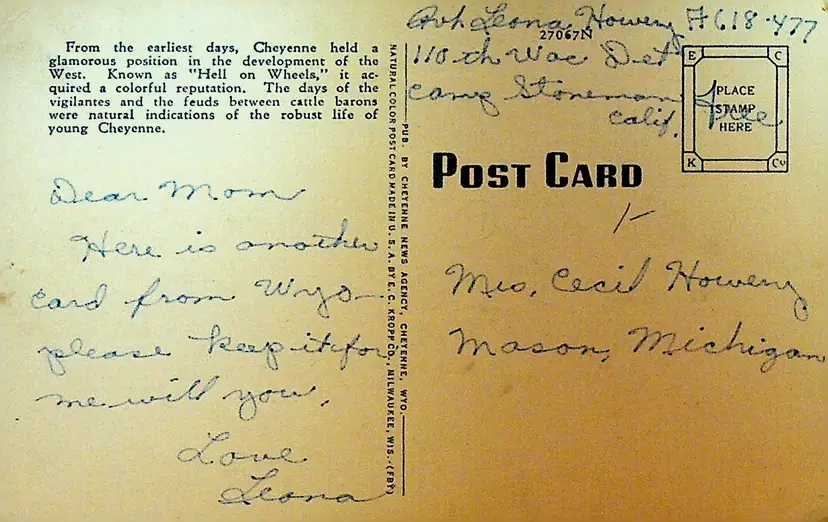 From the earliest days, Cheyenne held a
glamorous position in the development of the
West. Known as "Hell on Wheels," it ac-
quired a colorful reputation. The days of the
vigilantes and the feuds between cattle barons
were natural indications of the robust life of
young Cheyenne.
Dear Mom
Here is another
card from Wyo
please keep it for
me will you,
Love
Leona
NATURAL COLOR POST CARD MADE IN U. S. A. BY E. C. KROPP CO., MILWAUKEE, WIS. (FBY)
PUB. BY CHEYENNE NEWS AGENCY, CHEYENNE, WYO.
Pvt Leona Howery A618-477
27067N
110th Wac Det
Camp Stoneman
Calif.
Free
E C
PLACE
STAMP
HERE
K Co
POST CARD
1-
Mrs. Cecil Howery
Mason, Michigan